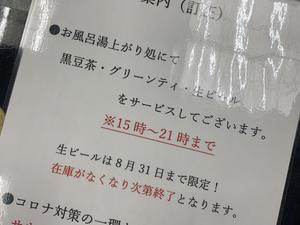 案内（訂正）
●お風呂湯上がり処にて
黒豆茶・グリーンティ・生ビール
をサービスしてございます。
※15時～21時まで
生ビールは8月31日まで限定！
在庫がなくなり次第終了となります。
●コロナ対策の一環